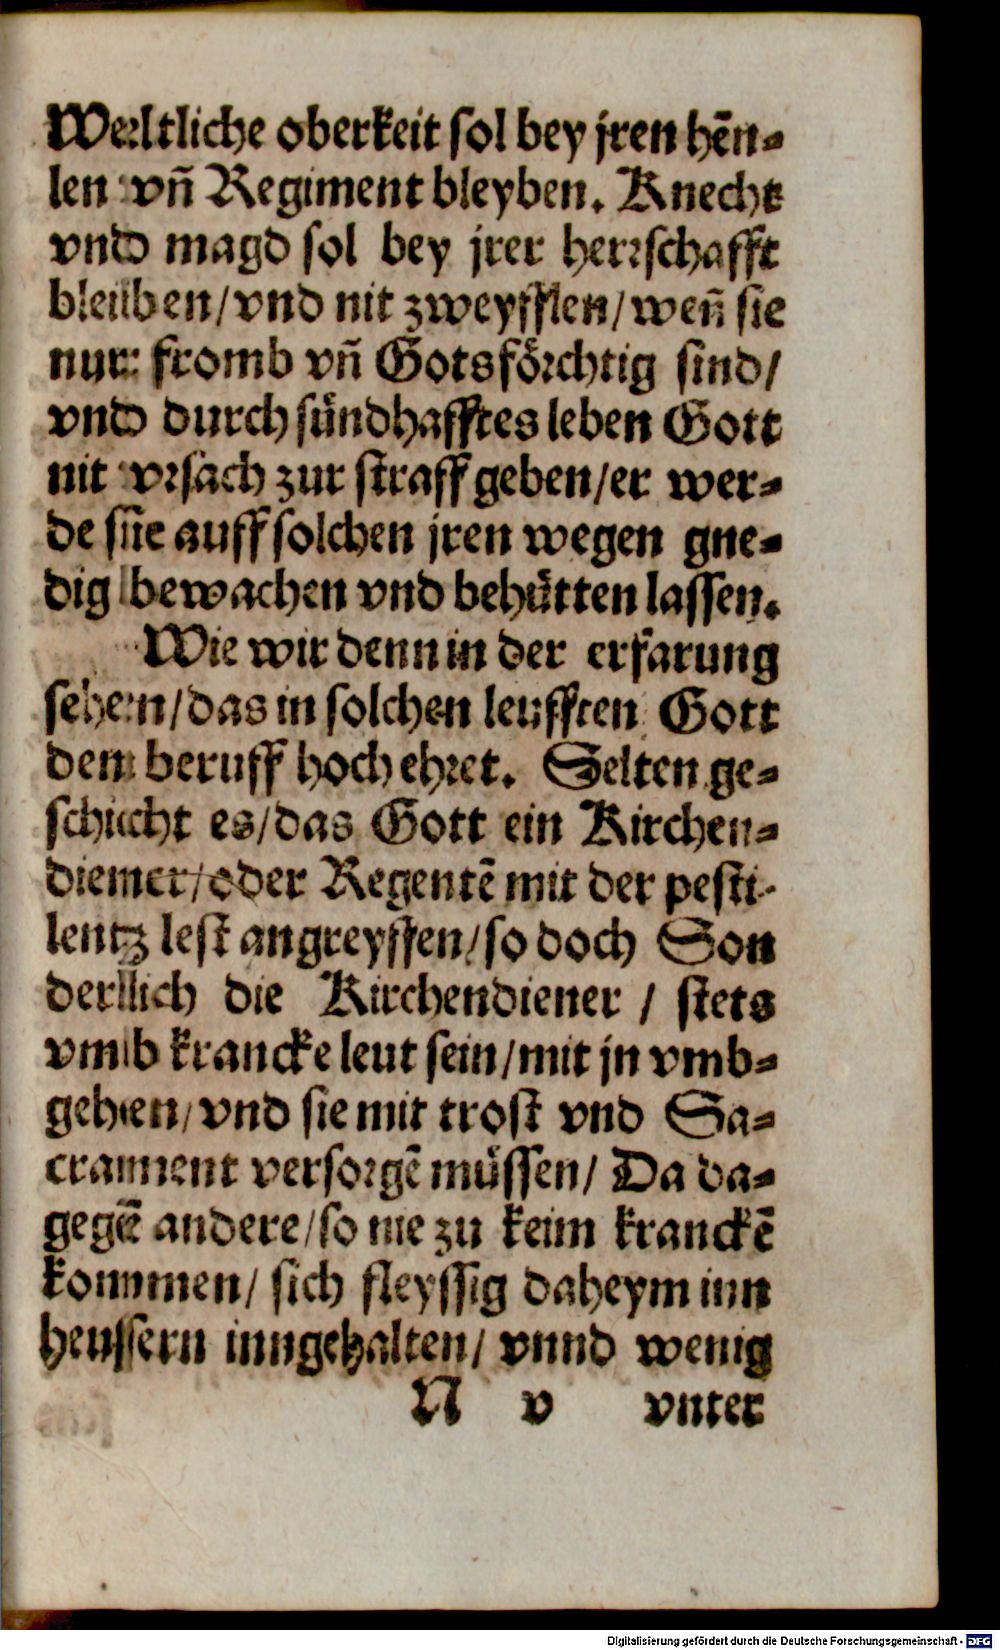 Weltliche oberkeit sol bey jren hēn-
len vñ Regiment bleyben. Knecht
vnd magd sol bey jrer herrschafft
bleiben/vnd nit zweyfflen/weñ sie
nur fromb vñ Gotsförchtig sind/
vnd durch sündhafftes leben Gott
nit vrsach zur straff geben/er wer-
de sie auff solchen jren wegen gne-
dig bewachen vnd behütten lassen.
Wie wir denn in der erfarung
sehen/das in solchen leufften Gott
den beruff hoch ehret. Selten ge-
schicht es/das Gott ein Kirchen-
diener/oder Regentē mit der pesti-
lentz lest angreyffen/so doch Son
derlich die Kirchendiener / stets
vmb krancke leut sein/mit jn vmb-
gehen/vnd sie mit trost vnd Sa-
crament versorgē müssen/ Da da-
gegē andere/so nie zu keim kranckē
kommen/ sich fleyssig daheym inn
heussern inngehalten/ vnnd wenig
N v vnter
Digitalisierung gefördert durch die Deutsche Forschungsgemeinschaft - DFG